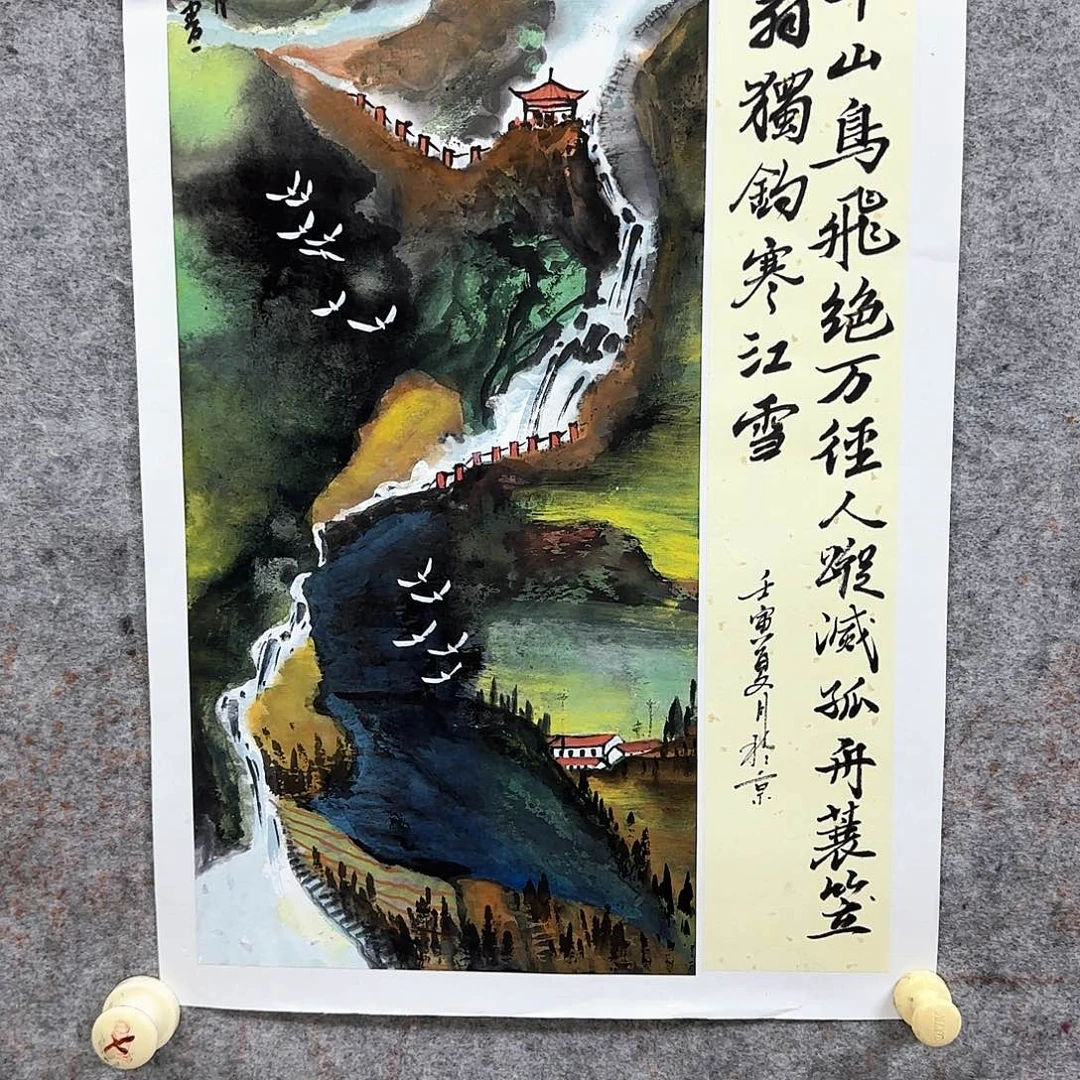 千山鳥飛绝万徑人蹤滅孤舟蓑笠
翁獨釣寒江雪
壬寅夏月於京